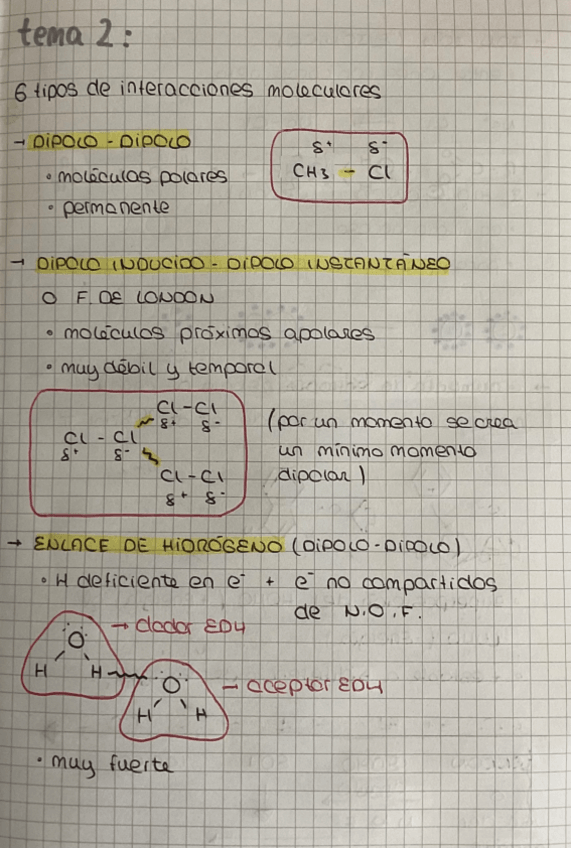 tema 2:
6 tipos de interacciones moleculares
→ DIPOLO - DIPOLO
• moléculas polares
• permanente
δ+ δ-
CH3 - Cl
→ DIPOLO INDUCIDO - DIPOLO INSTANTÁNEO
O F. DE LONDON
• moléculas próximas apolares
• muy débil y temporal
Cl - Cl
δ+ δ-
Cl - Cl
δ+ δ-
Cl - Cl
δ+ δ-
(por un momento se crea
un mínimo momento
dipolar)
→ ENLACE DE HIDRÓGENO (DIPOLO-DIPOLO)
• H deficiente en e- + e- no compartidos
de N.O.F.
→ dador EDH
O
H H
O
H H
→ aceptor EDH
• muy fuerte